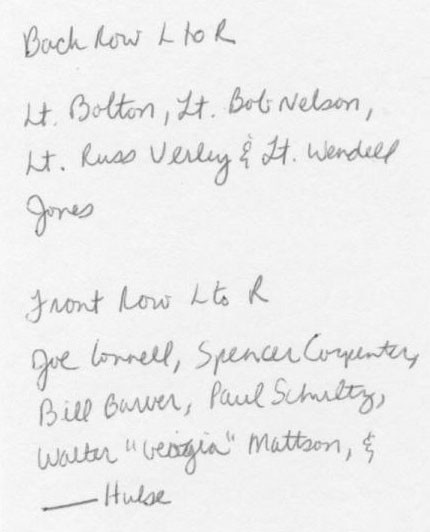 Back Row L to R
Lt. Bolton, Lt. Bob Nelson,
Lt. Russ Verley & Lt. Wendell
Jones
Front Row L to R
Joe Connell, Spencer Carpenter,
Bill Garver, Paul Schultz,
Walter "Georgia" Mattson, &
—— Hulse